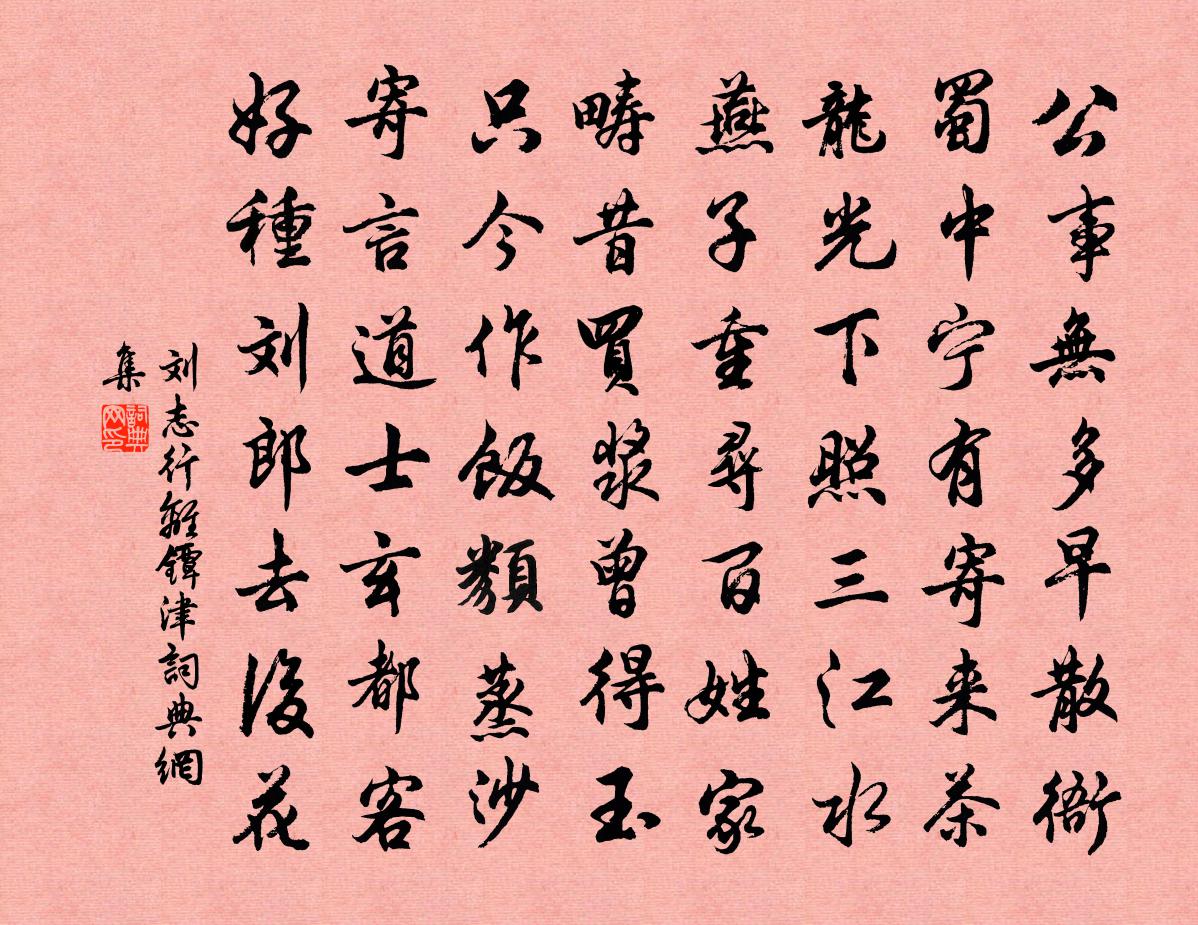 公事無多早散衙
蜀中宁有寄来茶
龍光下照三江水
燕子重尋百姓家
疇昔買漿曾得玉
只今作飯類蒸沙
寄言道士玄都客
好種刘郎去後花
刘志行離鐔津詞典網
集
詞典网印